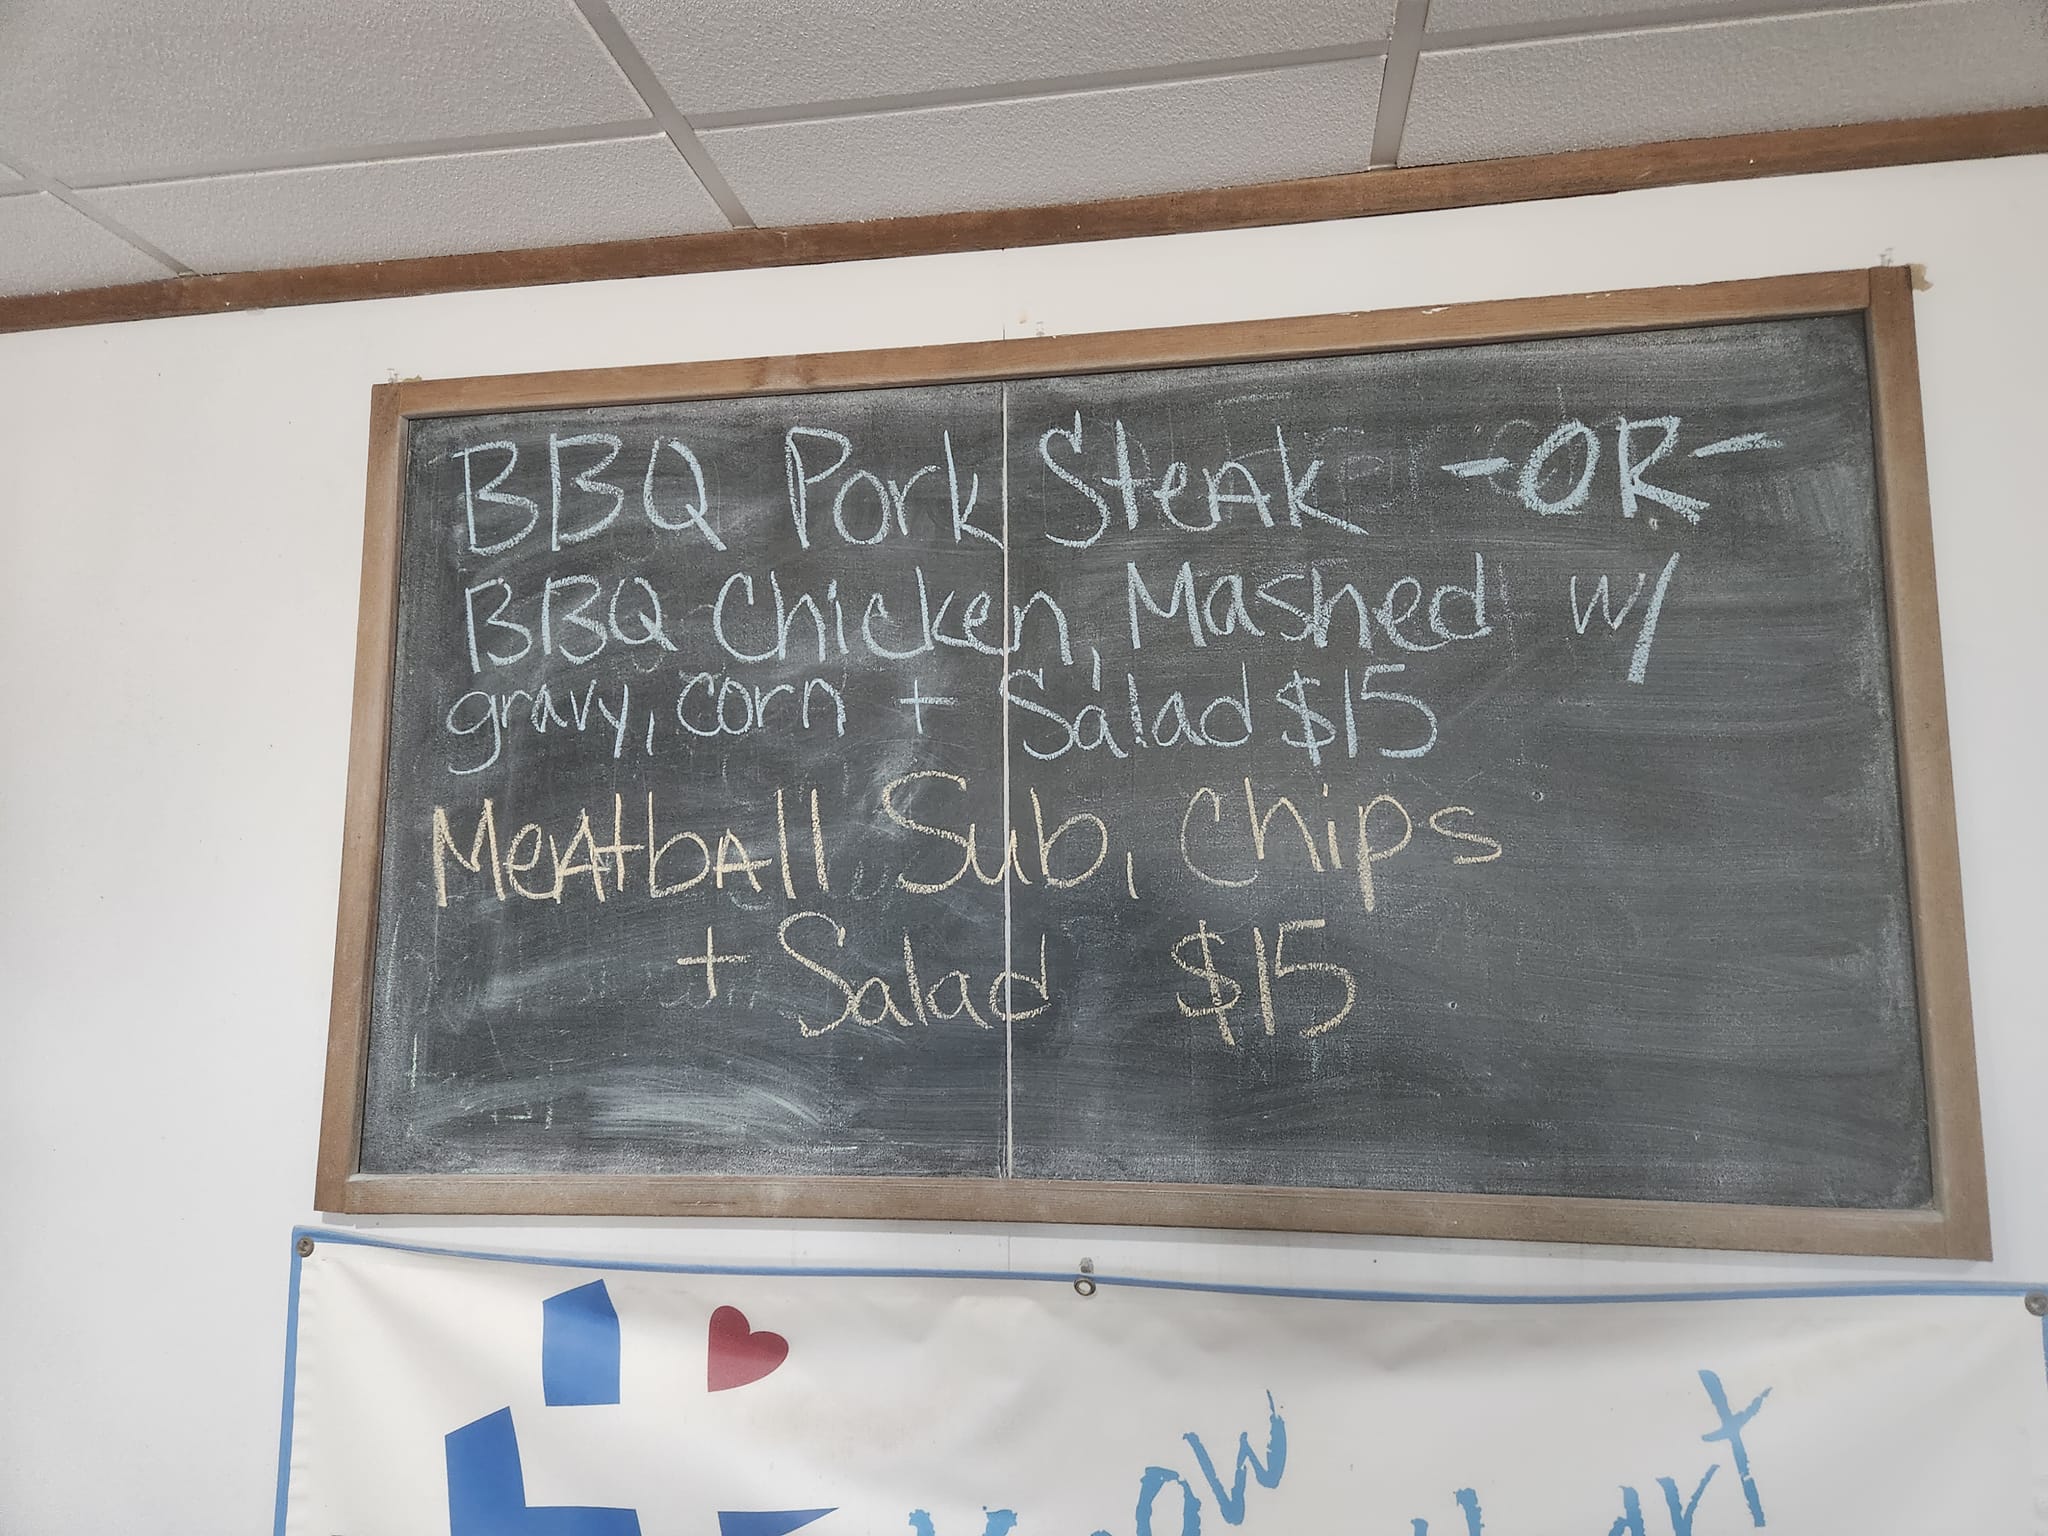 BBQ Pork Steak -OR-
BBQ Chicken, Mashed w/
gravy, corn + Salad $15
Meatball Sub, Chips
+ Salad $15